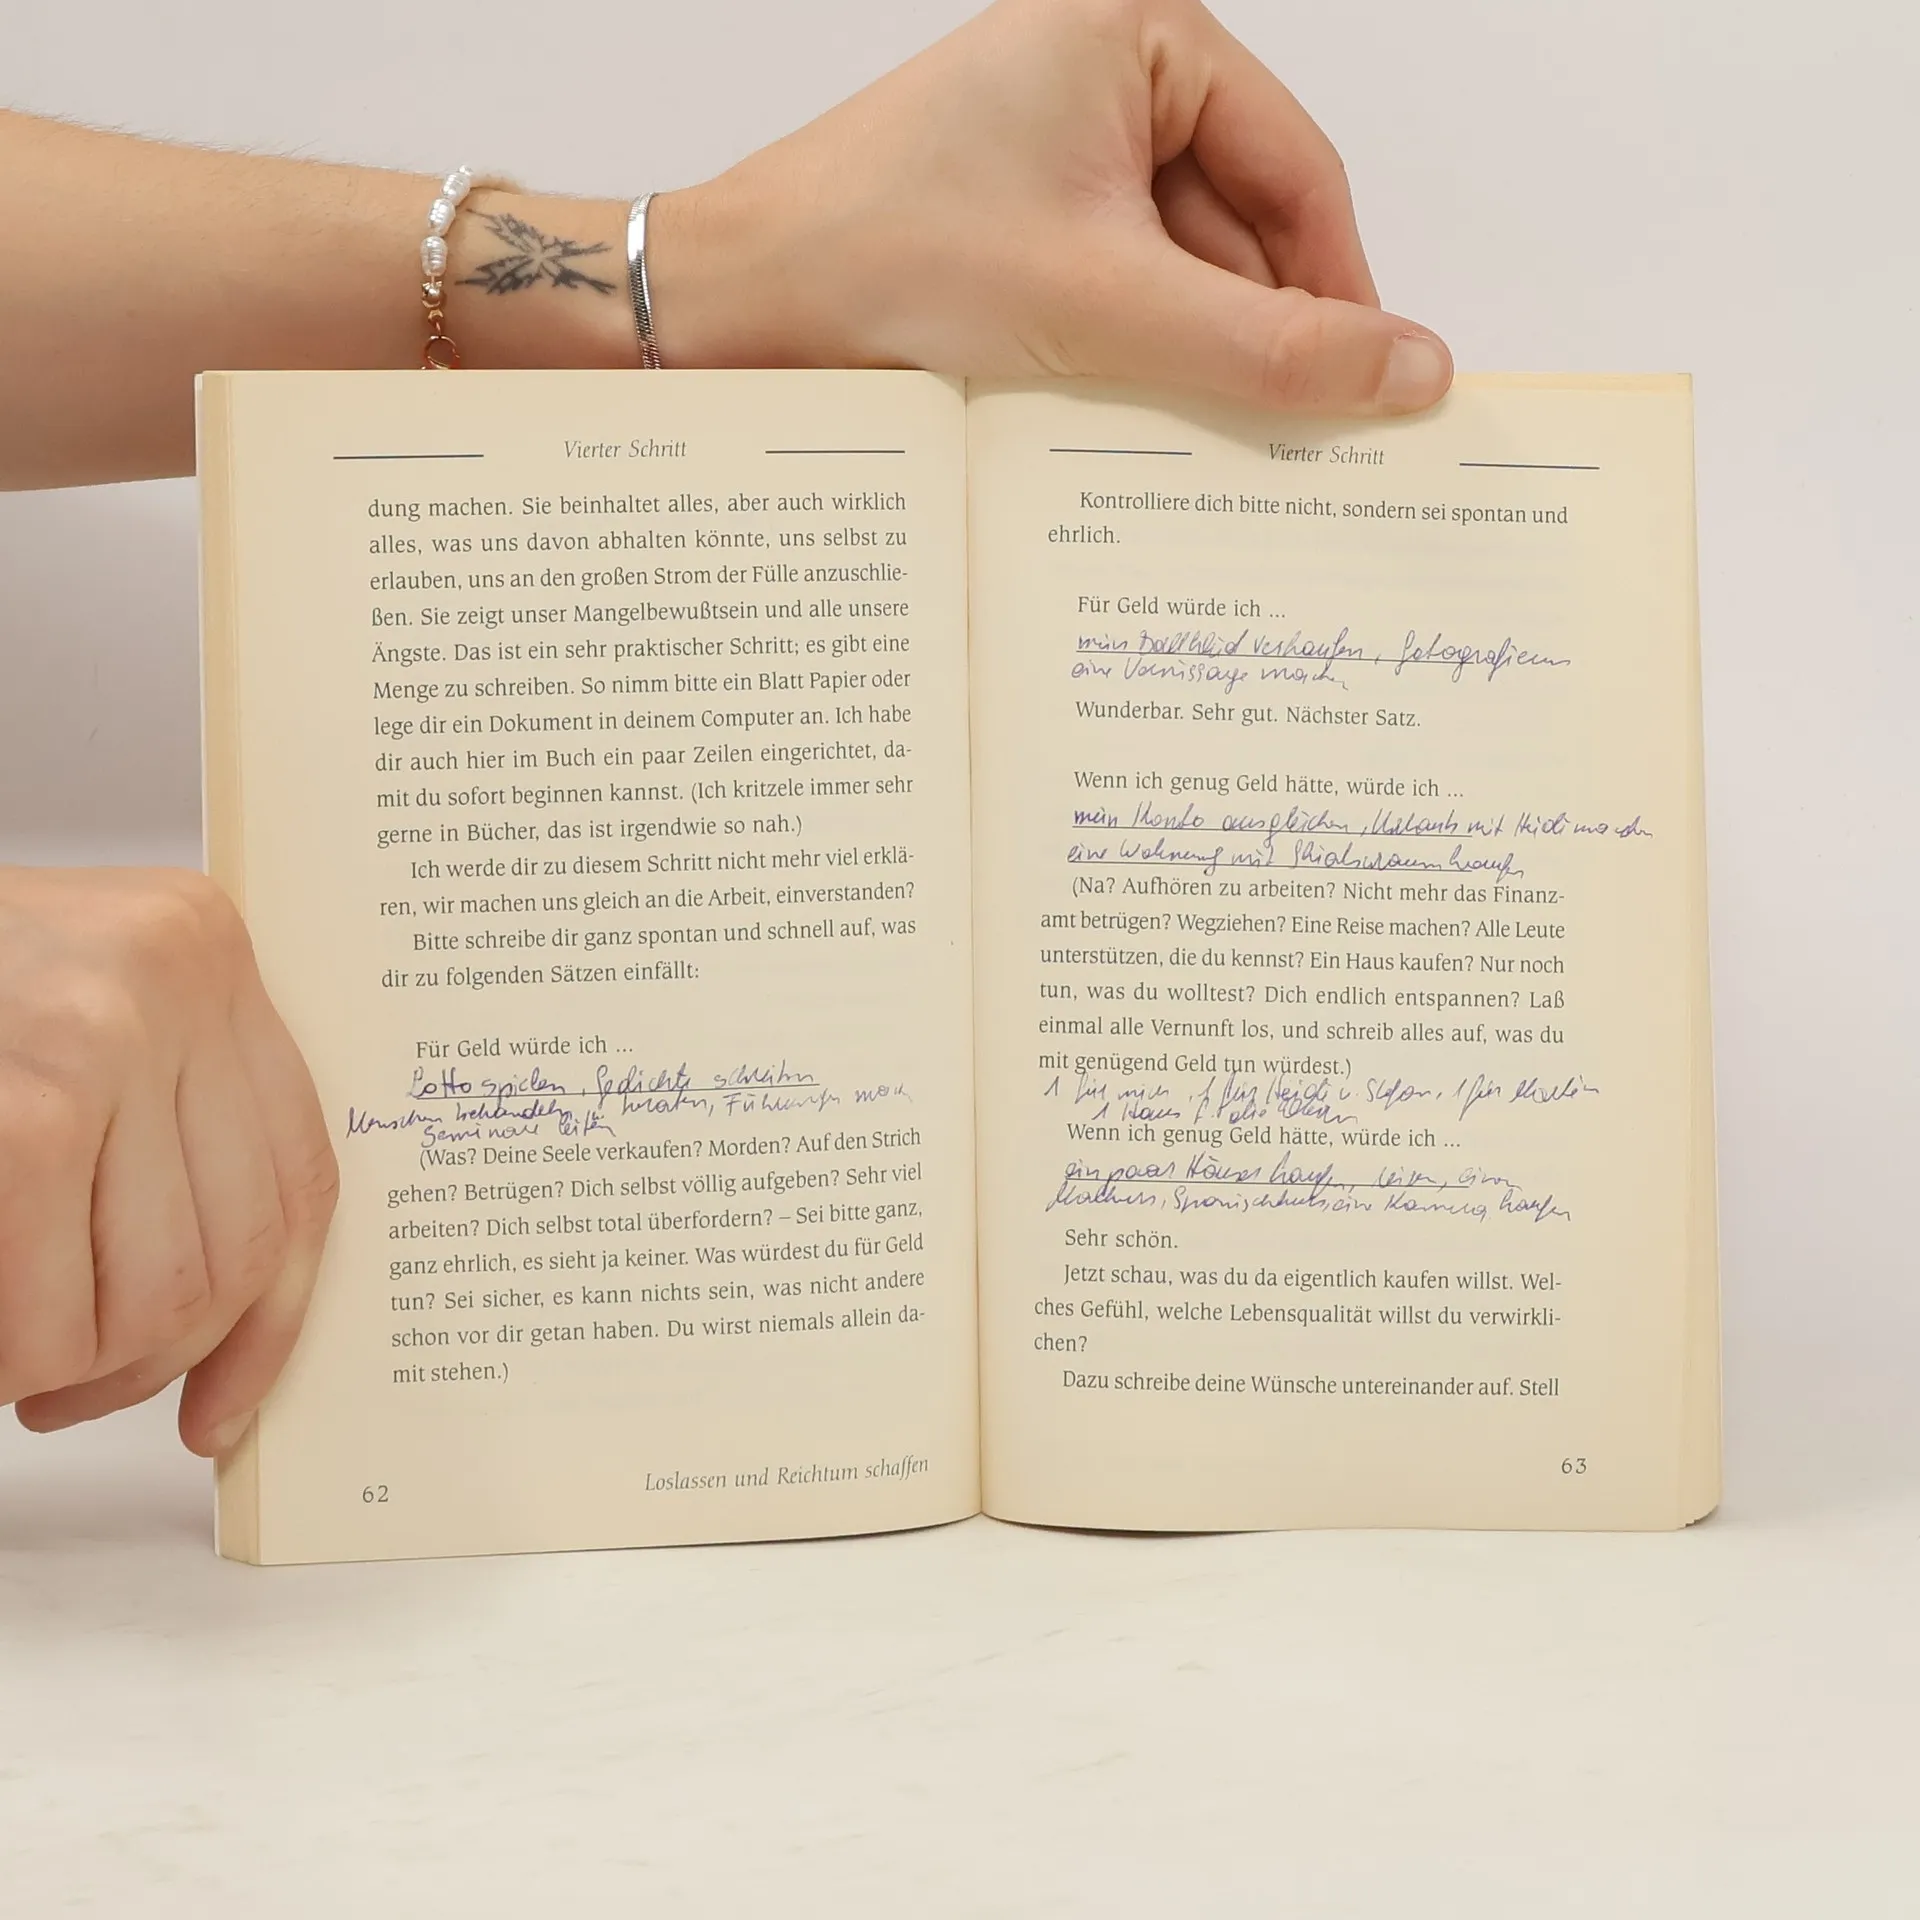 Vierter Schritt
dung machen. Sie beinhaltet alles, aber auch wirklich
alles, was uns davon abhalten könnte, uns selbst zu
erlauben, uns an den großen Strom der Fülle anzuschlie-
ßen. Sie zeigt unser Mangelbewußtsein und alle unsere
Ängste. Das ist ein sehr praktischer Schritt; es gibt eine
Menge zu schreiben. So nimm bitte ein Blatt Papier oder
lege dir ein Dokument in deinem Computer an. Ich habe
dir auch hier im Buch ein paar Zeilen eingerichtet, da-
mit du sofort beginnen kannst. (Ich kritzele immer sehr
gerne in Bücher, das ist irgendwie so nah.)
Ich werde dir zu diesem Schritt nicht mehr viel erklä-
ren, wir machen uns gleich an die Arbeit, einverstanden?
Bitte schreibe dir ganz spontan und schnell auf, was
dir zu folgenden Sätzen einfällt:
Für Geld würde ich ...
Lotto spielen, Gedichte schreiben
Menschen behandeln, beraten, Führungen
Seminare leiten
(Was? Deine Seele verkaufen? Morden? Auf den Strich
gehen? Betrügen? Dich selbst völlig aufgeben? Sehr viel
arbeiten? Dich selbst total überfordern? – Sei bitte ganz,
ganz ehrlich, es sieht ja keiner. Was würdest du für Geld
tun? Sei sicher, es kann nichts sein, was nicht andere
schon vor dir getan haben. Du wirst niemals allein da-
mit stehen.)
62
Loslassen und Reichtum schaffen
Vierter Schritt
Kontrolliere dich bitte nicht, sondern sei spontan und
ehrlich.
Für Geld würde ich ...
mein Ballkleid verkaufen, fotografieren
eine Vernissage machen
Wunderbar. Sehr gut. Nächster Satz.
Wenn ich genug Geld hätte, würde ich ...
mein Konto ausgleichen, Urlaub mit Heidi machen
eine Wohnung mit kaufen
(Na? Aufhören zu arbeiten? Nicht mehr das Finanz-
amt betrügen? Wegziehen? Eine Reise machen? Alle Leute
unterstützen, die du kennst? Ein Haus kaufen? Nur noch
tun, was du wolltest? Dich endlich entspannen? Laß
einmal alle Vernunft los, und schreib alles auf, was du
mit genügend Geld tun würdest.)
1 für mich, 1 für Heidi u. Stefan, 1 für
1 Haus f. die Eltern
Wenn ich genug Geld hätte, würde ich ...
ein paar Häuser kaufen,
eine Kamera kaufen
Sehr schön.
Jetzt schau, was du da eigentlich kaufen willst. Wel-
ches Gefühl, welche Lebensqualität willst du verwirkli-
chen?
Dazu schreibe deine Wünsche untereinander auf. Stell
63